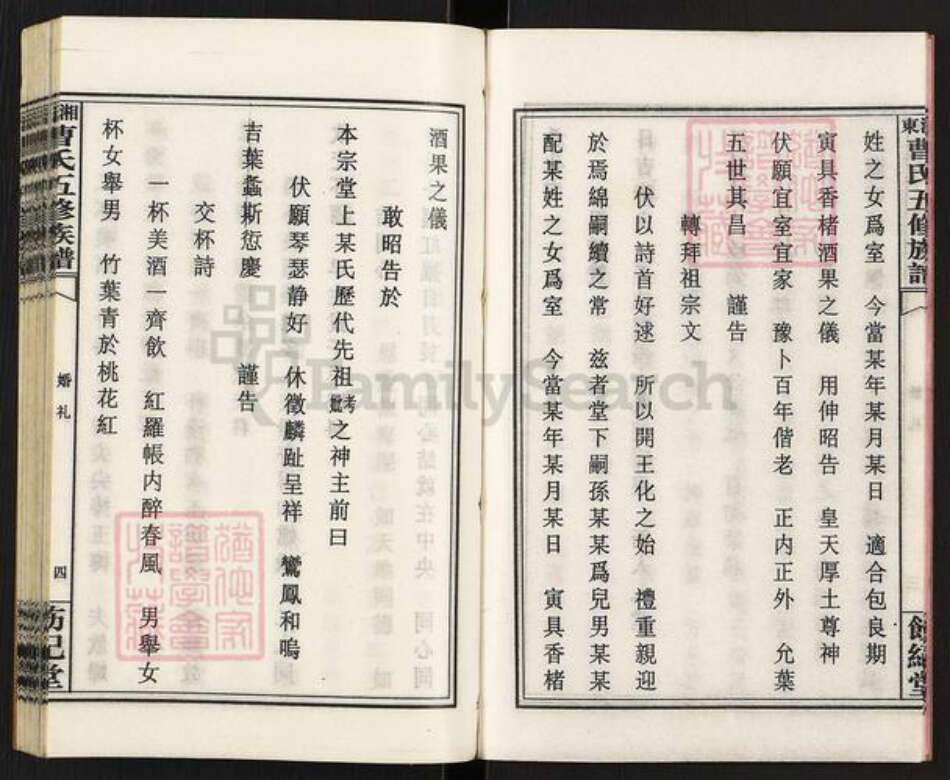 姓之女爲室 今當某年某月某日 適合包良期
寅具香楮酒果之儀 用伸昭告 皇天厚土尊神
伏願宜室宜家 豫卜百年偕老 正内正外 允葉
五世其昌 謹告
轉拜祖宗文
伏以詩首好逑 所以開王化之始 禮重親迎
於焉綿嗣續之常 兹者堂下嗣孫某某爲兒男某某
配某姓之女爲室 今當某年某月某日 寅具香楮
酒果之儀
敢昭告於
本宗堂上某氏歷代先祖考妣之神主前曰
伏願琴瑟静好 休徵麟趾呈祥 鸞鳳和鳴
吉葉螽斯愆慶 謹告
交杯詩
一杯美酒一齊飲 紅羅帳内醉春風 男舉女
杯女舉男 竹葉青於桃花紅
曹氏五修族譜
婚礼
四
FamilySearch